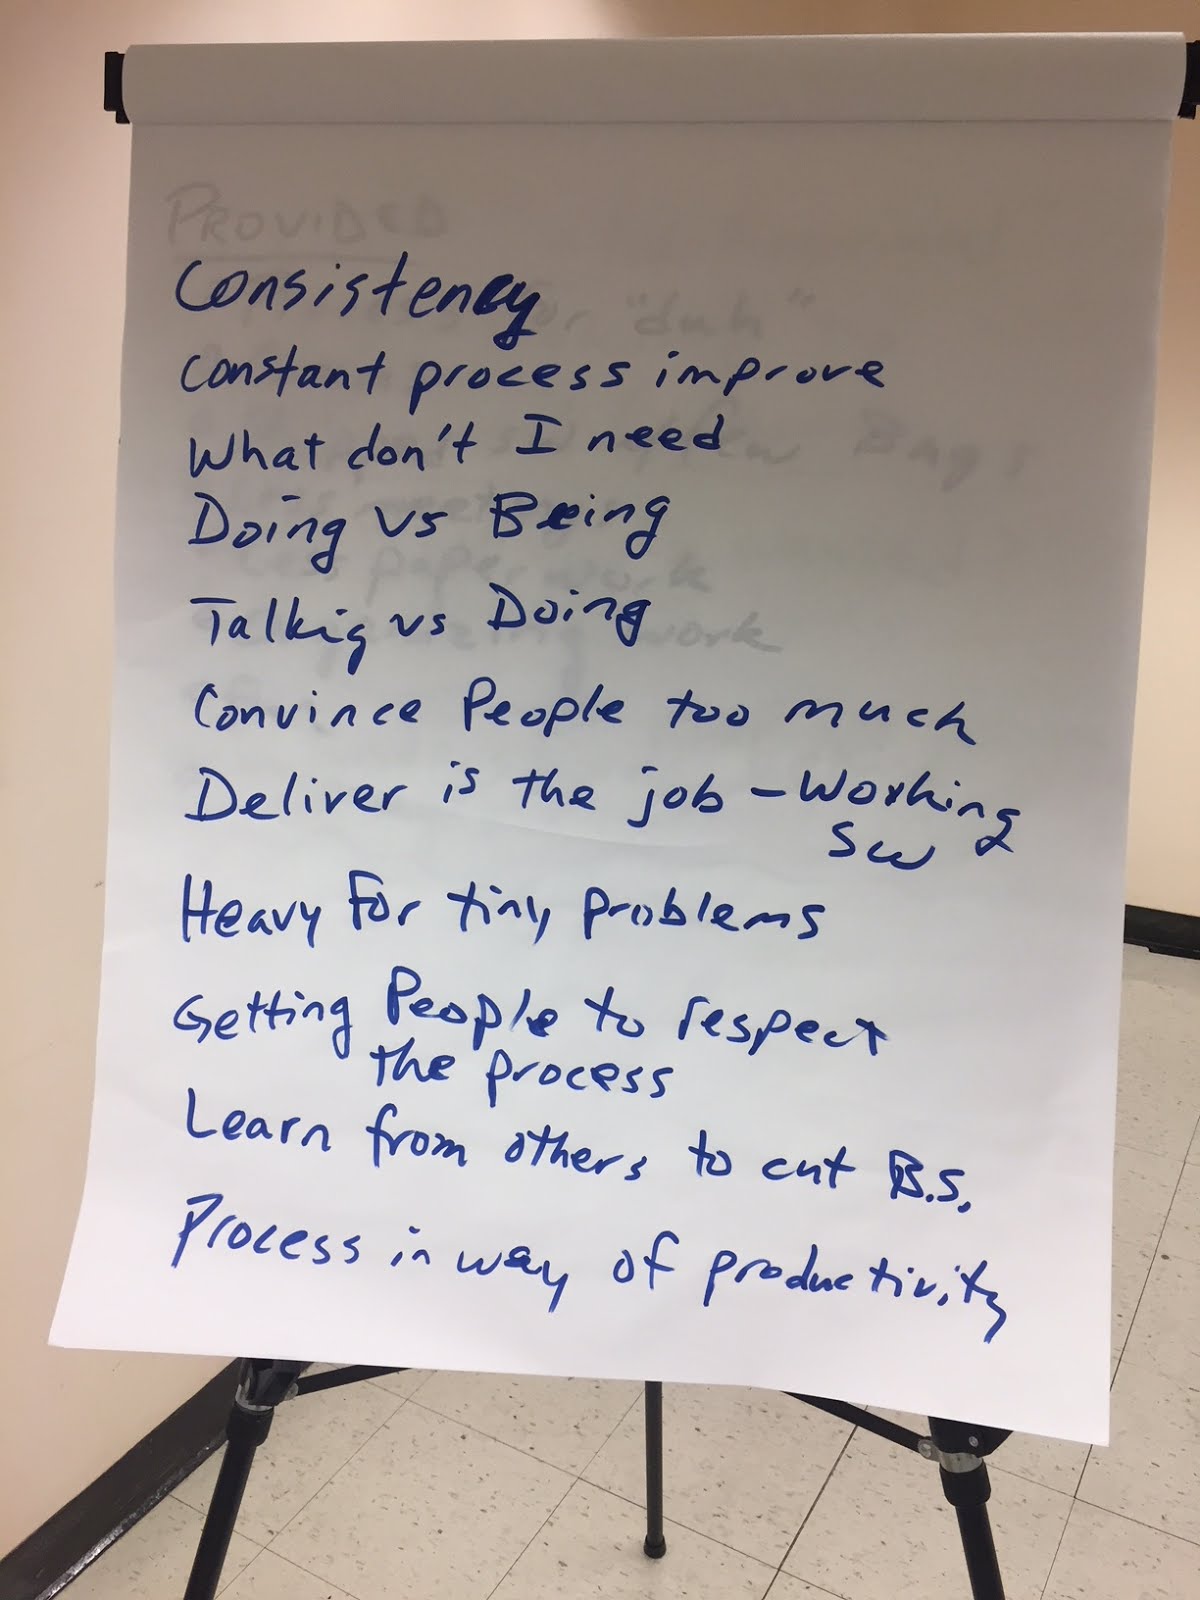 PROVIDED
Consistency
"duh"
Constant process improve
What don't I need
Doing vs Being
Talkig vs Doing
paper work
work
Convince People too much
Deliver is the job - Working
SW
Heavy For tiny problems
Getting People to respect
the process
Learn from others to cut B.S.
Process in way of productivity